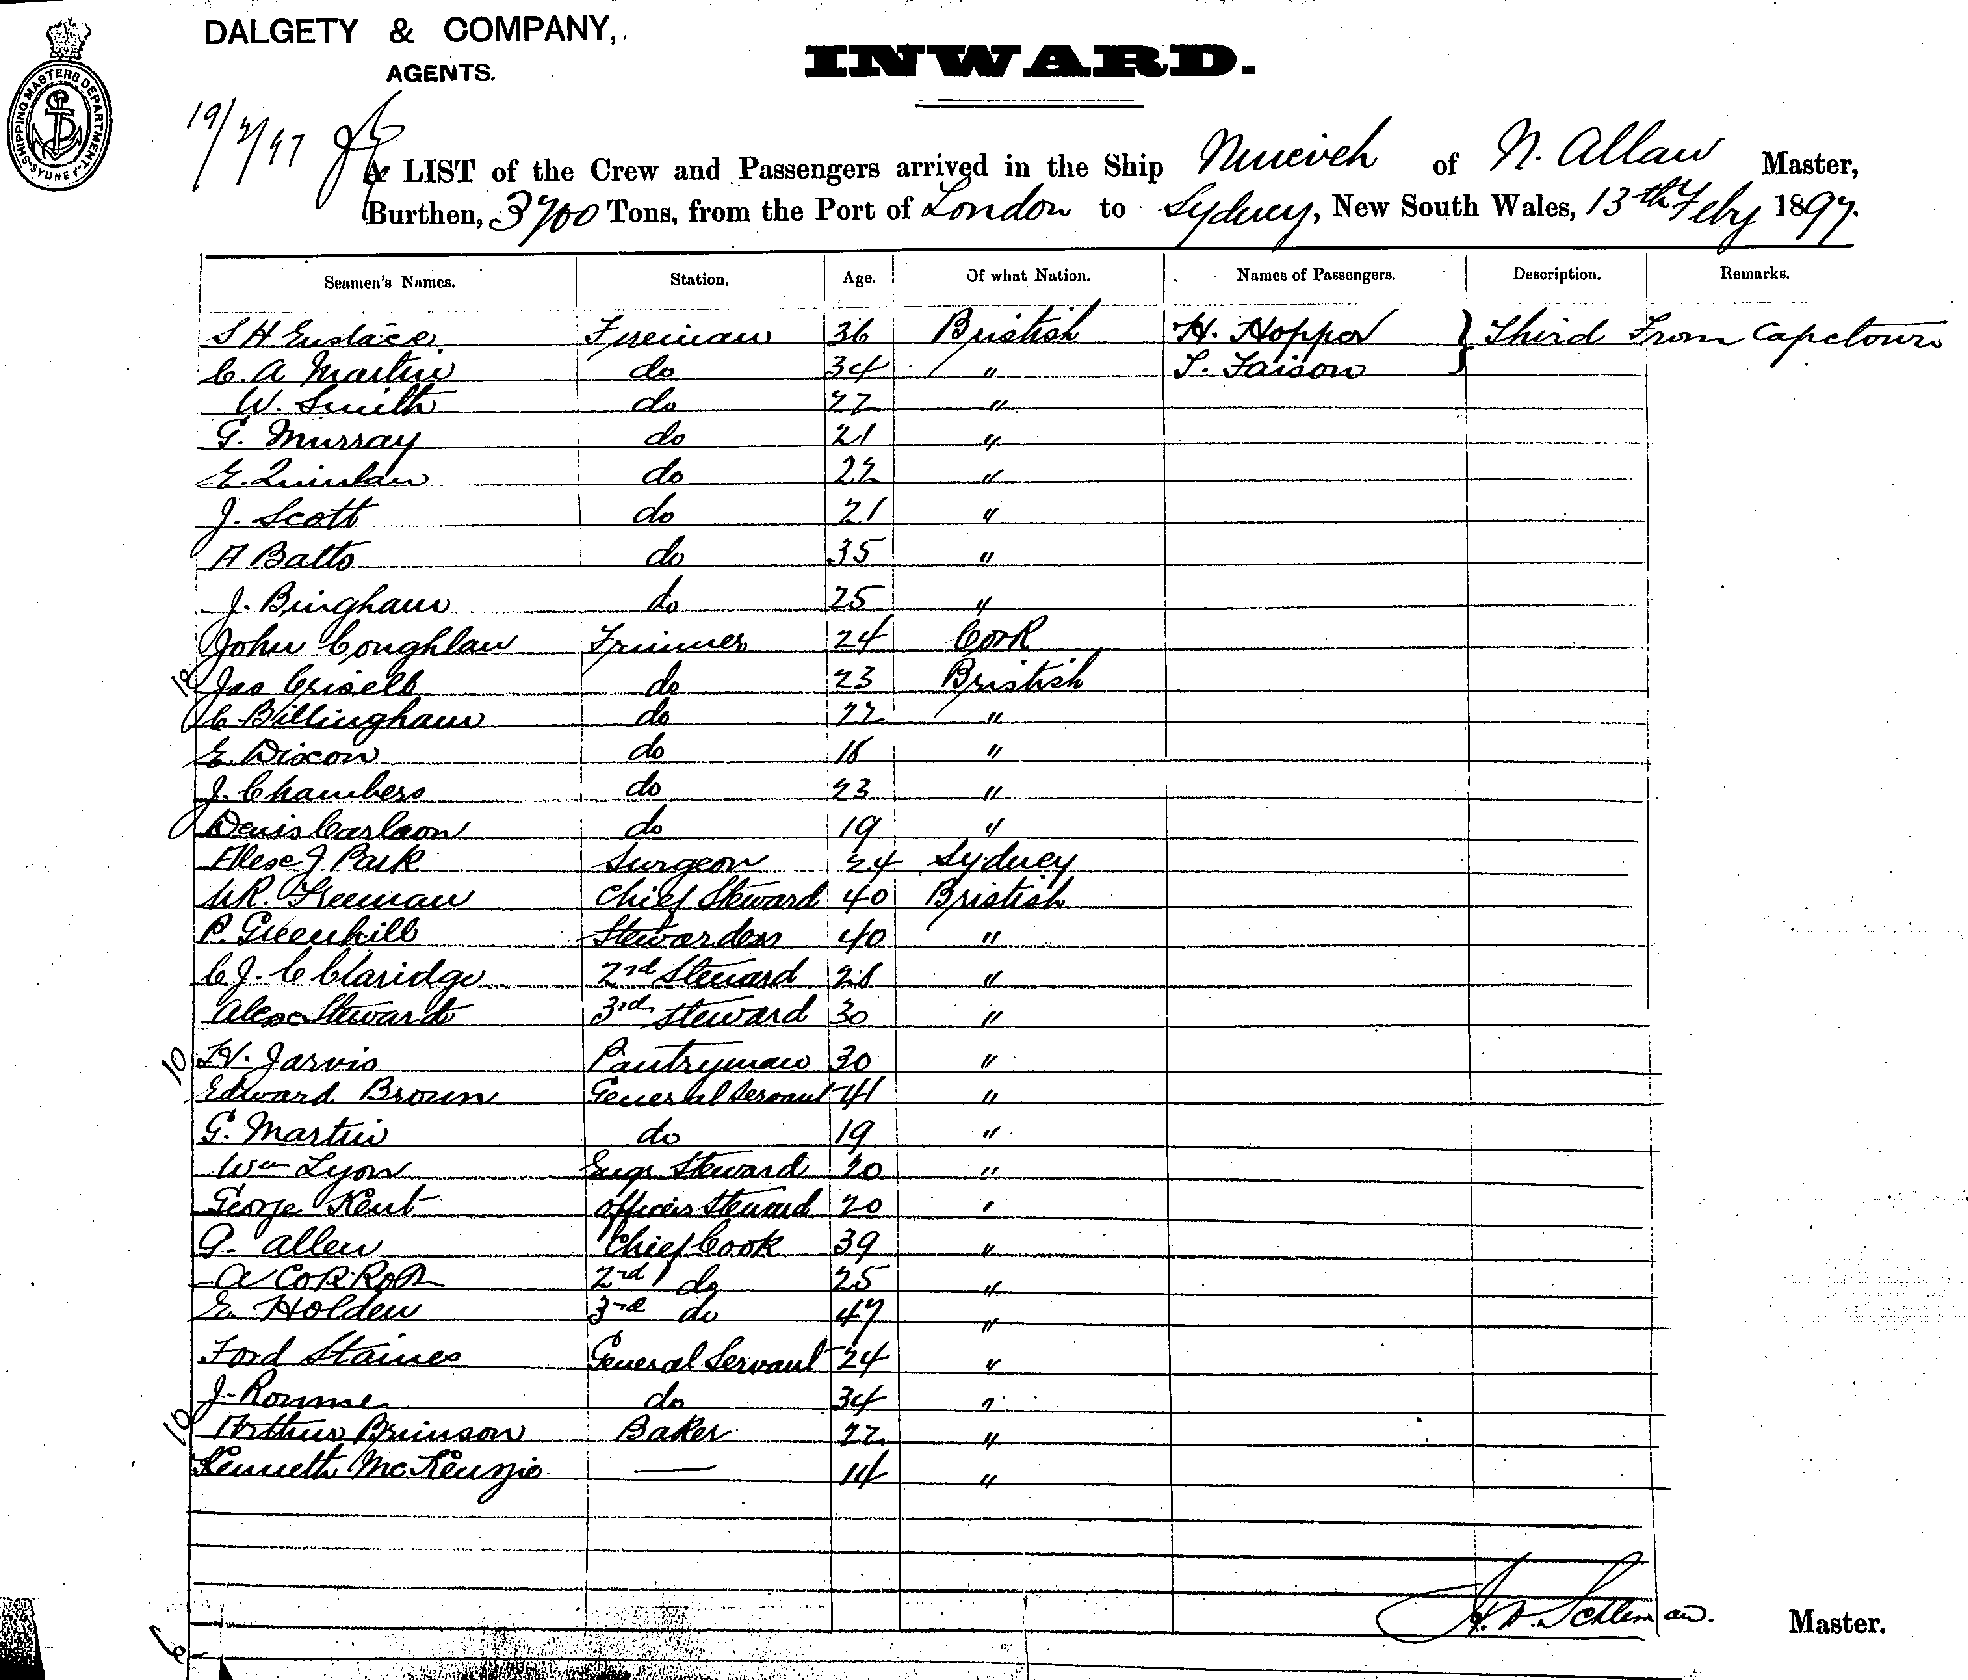 DALGETY & COMPANY,
AGENTS.
INWARD.
SHIPPING MASTERS DEPARTMENT SYDNEY
19/2/97
A LIST of the Crew and Passengers arrived in the Ship Nineveh of N. Allan Master,
Burthen, 3700 Tons, from the Port of London to Sydney, New South Wales, 13th Feby 1897.
Seamen's Names. Station. Age. Of what Nation. Names of Passengers. Description. Remarks.
S H Eustace Fireman 36 Bristish H. Hopper } Third From Capetown
C. A Martin do 34 " T. Faison
W. Smith do 22 "
G. Murray do 21 "
E. Quinlan do 22 "
J. Scott do 21 "
A Batts do 35 "
J. Bingham do 25 "
John Coghlan Trimmer 24 Cork
10 Jas Crisell do 23 Bristish
C Billingham do 22 "
E. Dixon do 18 "
J. Chambers do 23 "
Denis Carlson do 19 "
Alexe J Park Surgeon 24 Sydney
Freeman Chief Steward 40 Bristish
P. Greenhill Stewardess 40 "
C J. C Claridge 2nd Steward 28 "
Alex Steward 3rd Steward 30 "
10 H. Jarvis Pantryman 30 "
Edward Brown General Servant 41 "
G. Martin do 19 "
Wm Lyon Engr Steward 20 "
George Kent Officers Steward 20 "
G. Allen Chief Cook 39 "
A Corror 2nd do 25 "
E. Holden 3rd do 47 "
Ford Staines General Servant 24 "
J. do 34 "
10 Arthur Brinson Baker 22 "
Kenneth McKenzie — 14 "
6
Master.